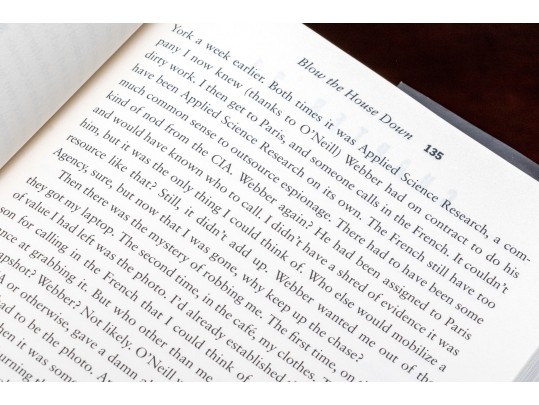 Blow the House Down 135
York a week earlier. Both times it was Applied Science Research, a com-
pany I now knew (thanks to O'Neill) Webber had on contract to do his
dirty work. I then get to Paris, and someone calls in the French. It couldn't
have been Applied Science Research on its own. The French still have too
much common sense to outsource espionage. There had to have been some
kind of nod from the CIA. Webber again? He had been assigned to Paris
and would have known who to call. I didn't have a shred of evidence it was
him, but it was the only thing I could think of. Who else would mobilize a
resource like that? Still, it didn't add up. Webber wanted me out of the
Agency, sure, but now that I was gone, why keep up the chase?
Then there was the mystery of robbing me. The first time, on the
they got my laptop. The second time, in the café, my clothes.
of value I had left was the photo. I'd already established
son for calling in the French that I could think of
at grabbing it. But who other than me
Webber? Not likely. O'Neill
or otherwise, gave a damn
to be the photo.
it was some